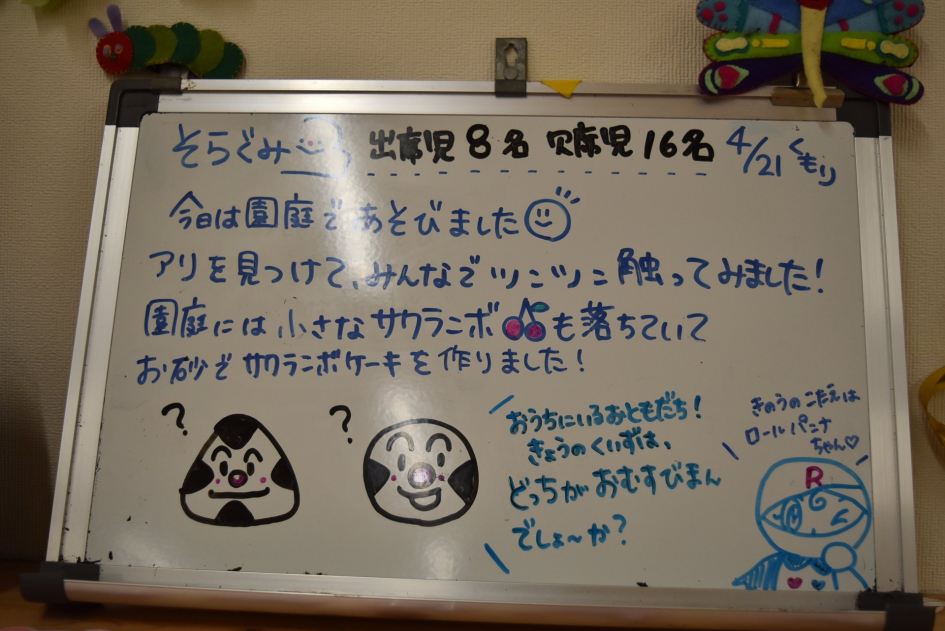 そらぐみ 出席児 8名 欠席児 16名 4/21 くもり
今日は園庭であそびました
アリを見つけて、みんなでツンツン触ってみました！
園庭には小さなサクランボも落ちていて
お砂でサクランボケーキを作りました！
?
?
おうちにいるおともだち！
きょうのくいずは、
どっちが おむすびまん
でしょ〜か？
きのうのこたえは
ロールパンナ
ちゃん♡
R